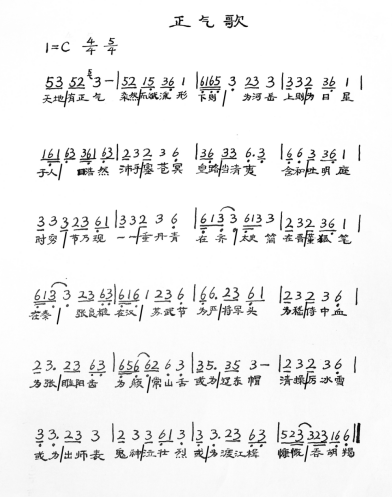 正气歌
1=C 4/4 5/4
53 52 3 - | 52 15 36 1 | 6165 3 23 3 | 332 36 1 |
天地/有正气 杂然/赋流形 下则/为河岳 上则/为日星
161 63 361 63 | 232 3 6 | 36 33 6·3 | 66 3 36 1 |
于人/曰浩然 沛乎/塞苍冥 皇路/当清夷 含和/吐明庭
33 323 61 | 332 3 6 | 613 3 613 3 | 232 36 1 |
时穷/节乃现 一一/垂丹青 在齐/太史简 在晋/董狐笔
613 3 23 63 | 616 1 23 6 | 66. 23 61 | 232 36 1 |
在秦/张良椎 在汉/苏武节 为严/将军头 为嵇/侍中血
23. 23 63 | 656 62 63 | 35. 35 3 - | 232 36 1 |
为张/睢阳齿 为颜/常山舌 或为/辽东帽 清操/厉冰雪
33. 23 3 | 23 3 61 3 | 33. 23 63 | 523 323 166 ‖
或为/出师表 鬼神/泣壮烈 或为/渡江楫 慷慨/吞胡羯